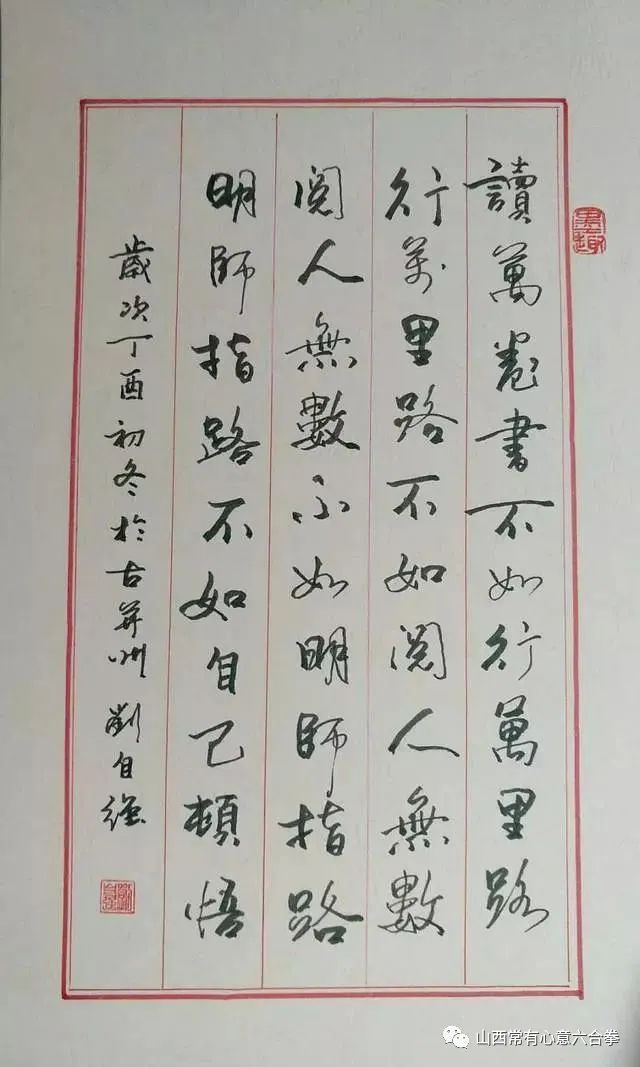 讀萬卷書不如行萬里路
行万里路不如閲人無數
閲人無數不如明師指路
明師指路不如自己頓悟
歲次丁酉初冬於古并州 劉自強
墨趣
山西常有心意六合拳